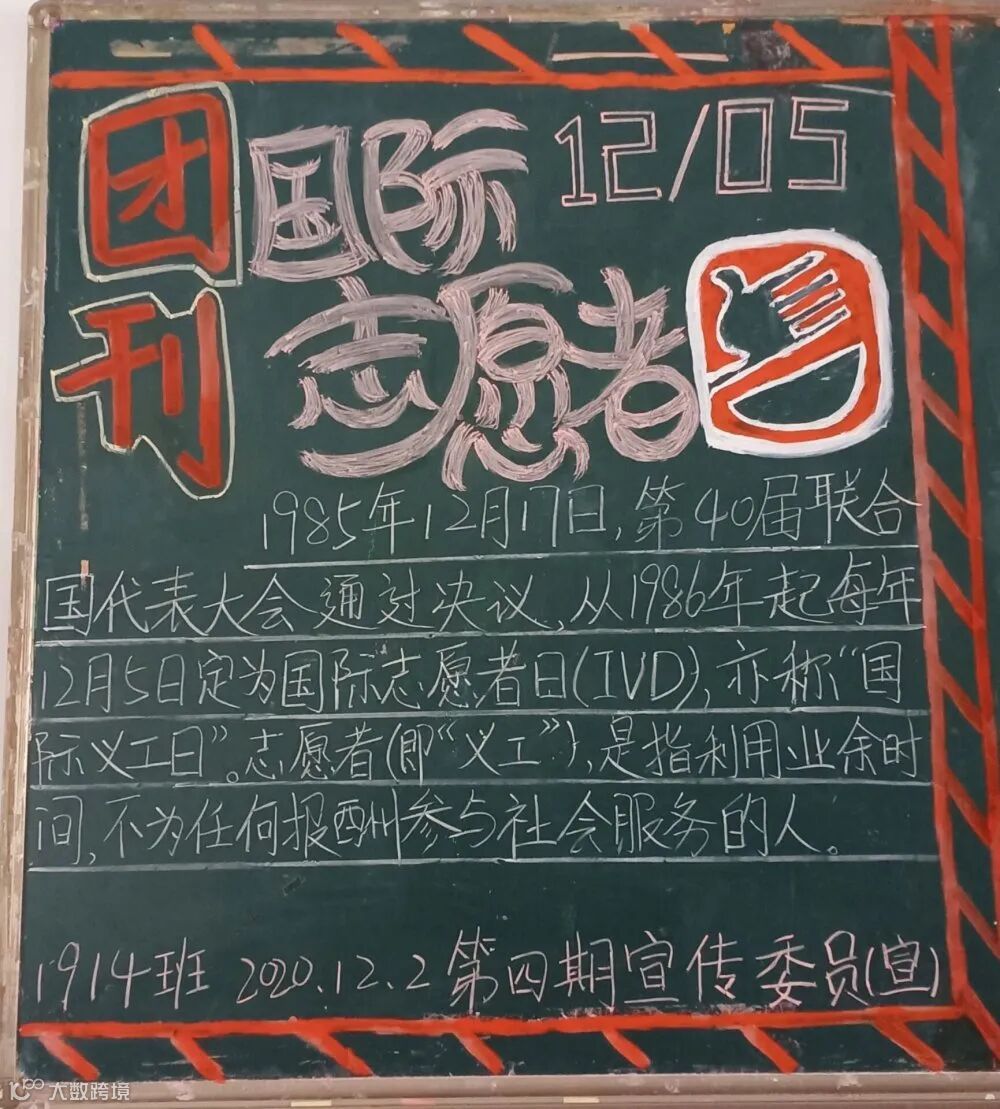 团刊
国际
12/05
志愿者
1985年12月17日,第40届联合
国代表大会通过决议,从1986年起每年
12月5日定为国际志愿者日(IVD),亦称“国
际义工日”。志愿者(即“义工”),是指利用业余时
间,不为任何报酬参与社会服务的人。
1914班 2020.12.2 第四期宣传委员(宣)
大数跨境